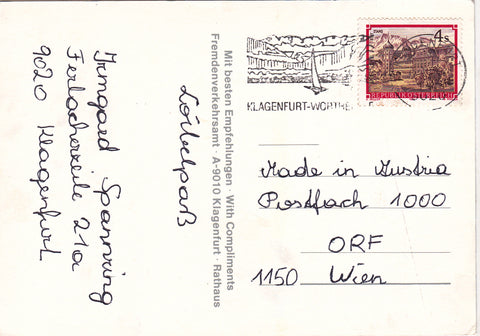 Irmgard Spannring
Ferlacherzeile 21a
9020 Klagenfurt
Loiblpaß
Mit besten Empfehlungen · With Compliments
Fremdenverkehrsamt · A-9010 Klagenfurt · Rathaus
KLAGENFURT-WÖRTHE
STAMS
4 s
REPUBLIK ÖSTERREICH
Made in Austria
Postfach 1000
ORF
1150 Wien